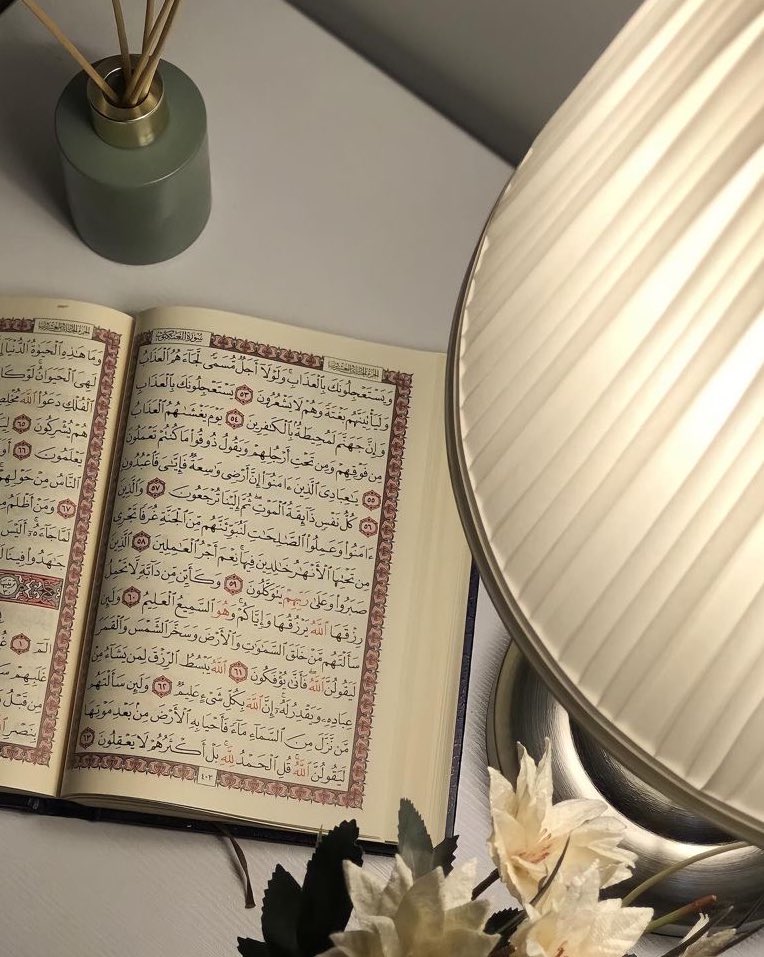 سورة العنكبوت
الجزء الحادي والعشرون
وَيَسْتَعْجِلُونَكَ بِالْعَذَابِ وَلَوْلَا أَجَلٌ مُّسَمًّى لَّجَاءَهُمُ الْعَذَابُ
وَلَيَأْتِيَنَّهُم بَغْتَةً وَهُمْ لَا يَشْعُرُونَ ٥٣ يَسْتَعْجِلُونَكَ بِالْعَذَابِ
وَإِنَّ جَهَنَّمَ لَمُحِيطَةٌ بِالْكَافِرِينَ ٥٤ يَوْمَ يَغْشَاهُمُ الْعَذَابُ
مِن فَوْقِهِمْ وَمِن تَحْتِ أَرْجُلِهِمْ وَيَقُولُ ذُوقُوا مَا كُنتُمْ تَعْمَلُونَ
٥٥ يَاعِبَادِيَ الَّذِينَ ءَامَنُوا إِنَّ أَرْضِي وَاسِعَةٌ فَإِيَّايَ فَاعْبُدُونِ
٥٦ كُلُّ نَفْسٍ ذَائِقَةُ الْمَوْتِ ثُمَّ إِلَيْنَا تُرْجَعُونَ ٥٧ وَالَّذِينَ
ءَامَنُوا وَعَمِلُوا الصَّالِحَاتِ لَنُبَوِّئَنَّهُم مِّنَ الْجَنَّةِ غُرَفًا تَجْرِي
مِن تَحْتِهَا الْأَنْهَارُ خَالِدِينَ فِيهَا نِعْمَ أَجْرُ الْعَامِلِينَ ٥٨ الَّذِينَ
صَبَرُوا وَعَلَى رَبِّهِمْ يَتَوَكَّلُونَ ٥٩ وَكَأَيِّن مِّن دَابَّةٍ لَّا تَحْمِلُ
رِزْقَهَا اللَّهُ يَرْزُقُهَا وَإِيَّاكُمْ وَهُوَ السَّمِيعُ الْعَلِيمُ ٦٠ وَلَئِن
سَأَلْتَهُم مَّنْ خَلَقَ السَّمَاوَاتِ وَالْأَرْضَ وَسَخَّرَ الشَّمْسَ وَالْقَمَرَ
لَيَقُولُنَّ اللَّهُ فَأَنَّى يُؤْفَكُونَ ٦١ اللَّهُ يَبْسُطُ الرِّزْقَ لِمَن يَشَاءُ مِنْ
عِبَادِهِ وَيَقْدِرُ لَهُ إِنَّ اللَّهَ بِكُلِّ شَيْءٍ عَلِيمٌ ٦٢ وَلَئِن سَأَلْتَهُم
مَّن نَّزَّلَ مِنَ السَّمَاءِ مَاءً فَأَحْيَا بِهِ الْأَرْضَ مِن بَعْدِ مَوْتِهَا
لَيَقُولُنَّ اللَّهُ قُلِ الْحَمْدُ لِلَّهِ بَلْ أَكْثَرُهُمْ لَا يَعْقِلُونَ ٦٣
٤٠٣
الجزء الحادي والعشرون
وَمَا هَذِهِ الْحَيَوةُ الدُّنْيَا
لَهِيَ الْحَيَوَانُ لَوْ
الْفُلْكِ دَعَوُا اللَّهَ
هُمْ يُشْرِكُونَ ٦٥
يَعْلَمُونَ ٦٦
النَّاسُ مِنْ حَوْلِهِمْ
٦٧ وَمَنْ أَظْلَمُ
لَمَّا جَاءَهُ أَلَيْسَ
جَاهَدُوا فِينَا
الم ١
غَلَبِهِمْ
مِن قَبْلُ